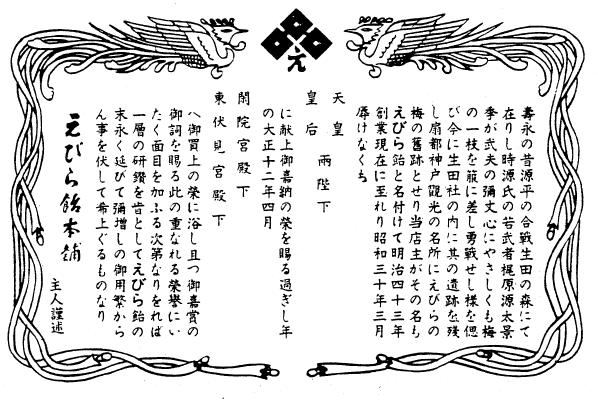 元
壽永の昔源平の合戦生田の森にて
在りし時源氏の若武者梶原源太景
季が武夫の彌丈心にやさしくも梅
の一枝を箙に差し勇戦せし様を偲
び今に生田社の内に其の遺跡を残
し扇都神戸觀光の名所にえびらの
梅の舊跡とせり当店主がその名も
えびら飴と名付けて明治四十三年
創業現在に至れり昭和三十年三月
辱けなくも
天皇
皇后 両陛下
に献上御嘉納の榮を賜る過ぎし年
の大正十二年四月
閑院宮殿下
東伏見宮殿下
へ御買上の榮に浴し且つ御嘉賞の
御詞を賜る此の重なれる榮誉にい
たく面目を加ふる次第なりをれば
一層の研鑚を旨としてえびら飴の
末永く延びて彌増しの御用繁から
ん事を伏して希上ぐるものなり
えびら飴本舗
主人謹述